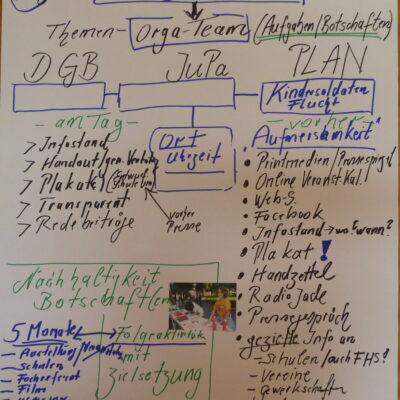 Themen-Orga-Team (Aufgaben/Botschaften)
DGB JuPa PLAN
Kindersoldaten
Flucht
- am Tag -
- vorher -
Ort
Uhrzeit
> Infostand
> Handout/gen.
> Plakate
> Transparent
> Redebeiträge
vorher
Presse
"Aufmerksamkeit"
• Printmedien/Pressespiegel
• Online Veranst.Kal.
• Web-S.
• Facebook
• Infostand → wo? wann?
• Plakat!
• Handzettel
• Radio Jade
• Pressegespräch
• gezielte Info an
- Schulen (auch FHS?)
- Vereine
- Gewerkschaften
Nachhaltigkeit
Botschaften
5 Monate
Folgeaktivität
mit
Zielsetzung
- Ausstellung/
- Schulen
- Fachreferent
- Film